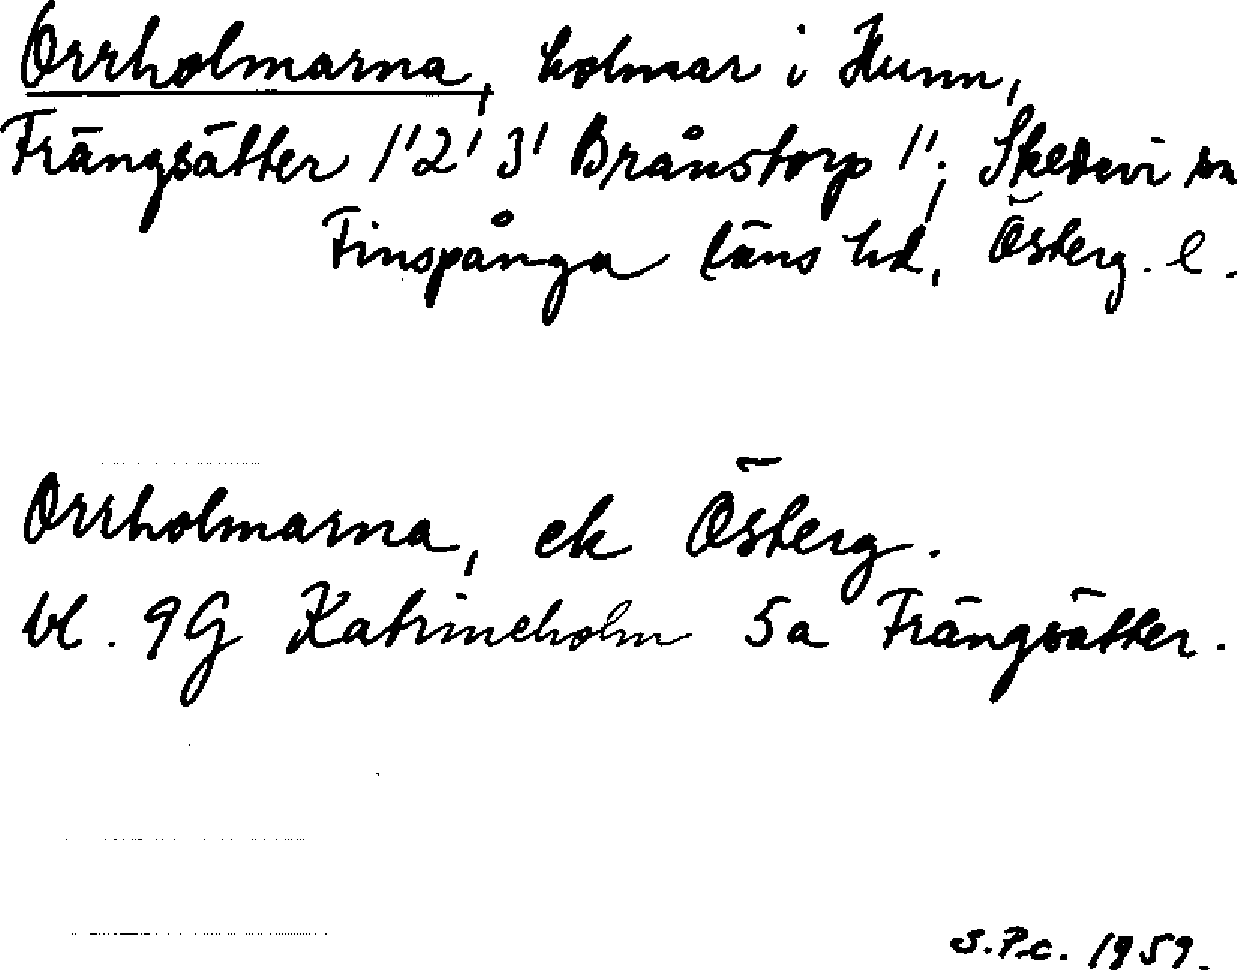 Orrholmarna, holmar i Hunn,
Frängsätter 1'2'3' Brånstorp 1'; Skedevi sn
Finspånga läns hd, Österg. l.
Orrholmarna, ek Österg.
bl. 9G Katrineholm 5a Frängsätter.
S.P.c. 1959.